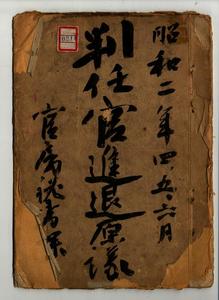 昭和二年四、五、六月
判任官進退原議
官房秘書課